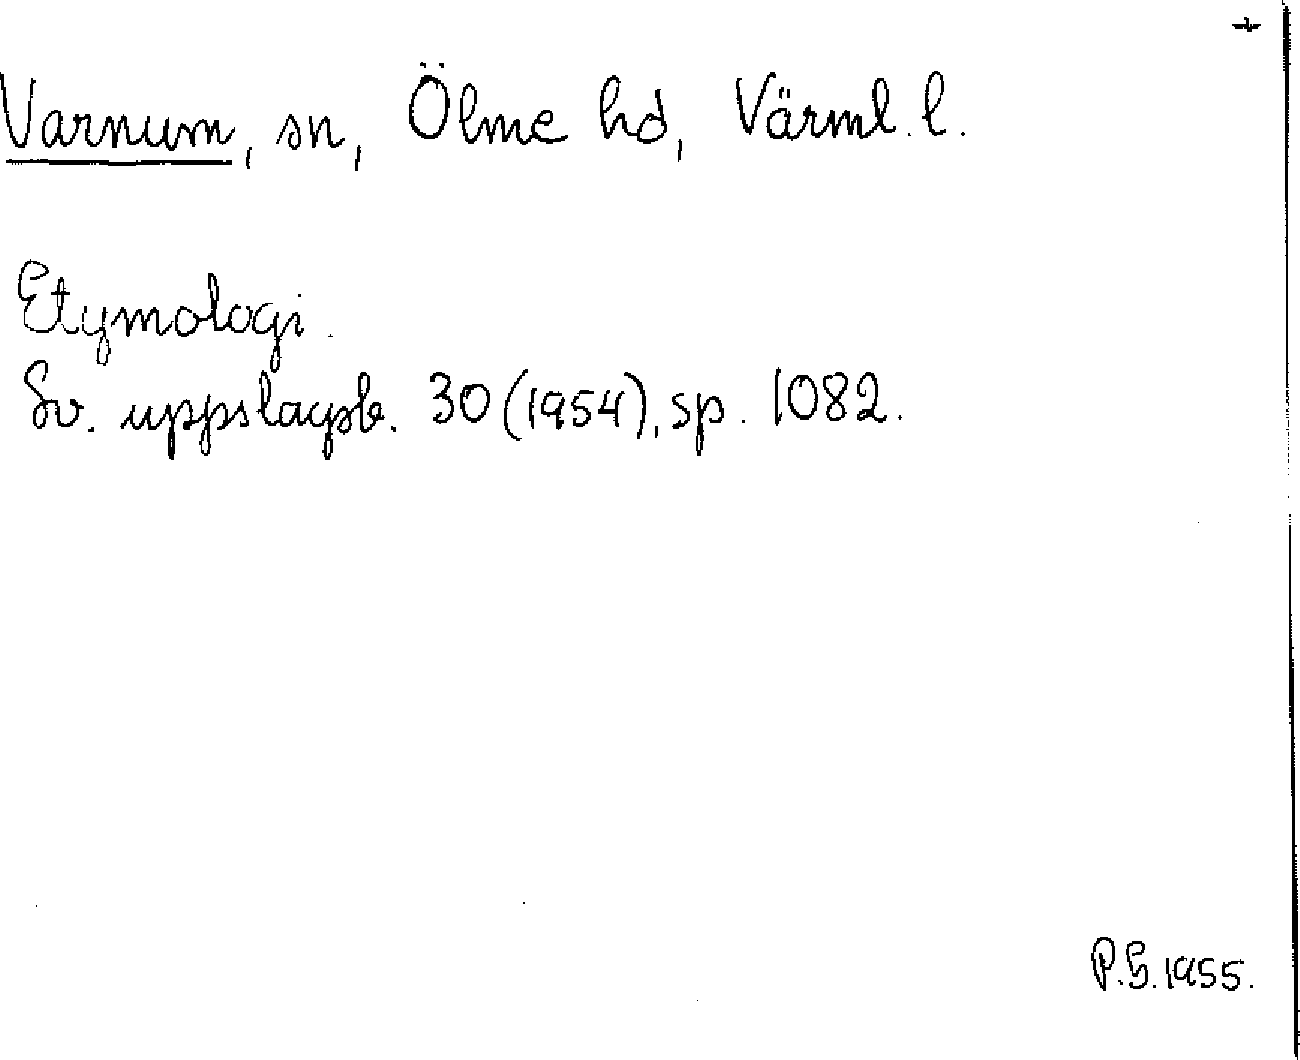 +
Varnum, sn, Ölme hd, Värml. l.
Etymologi.
Sv. uppslagsb. 30 (1954), sp. 1082.
P.G. 1955.